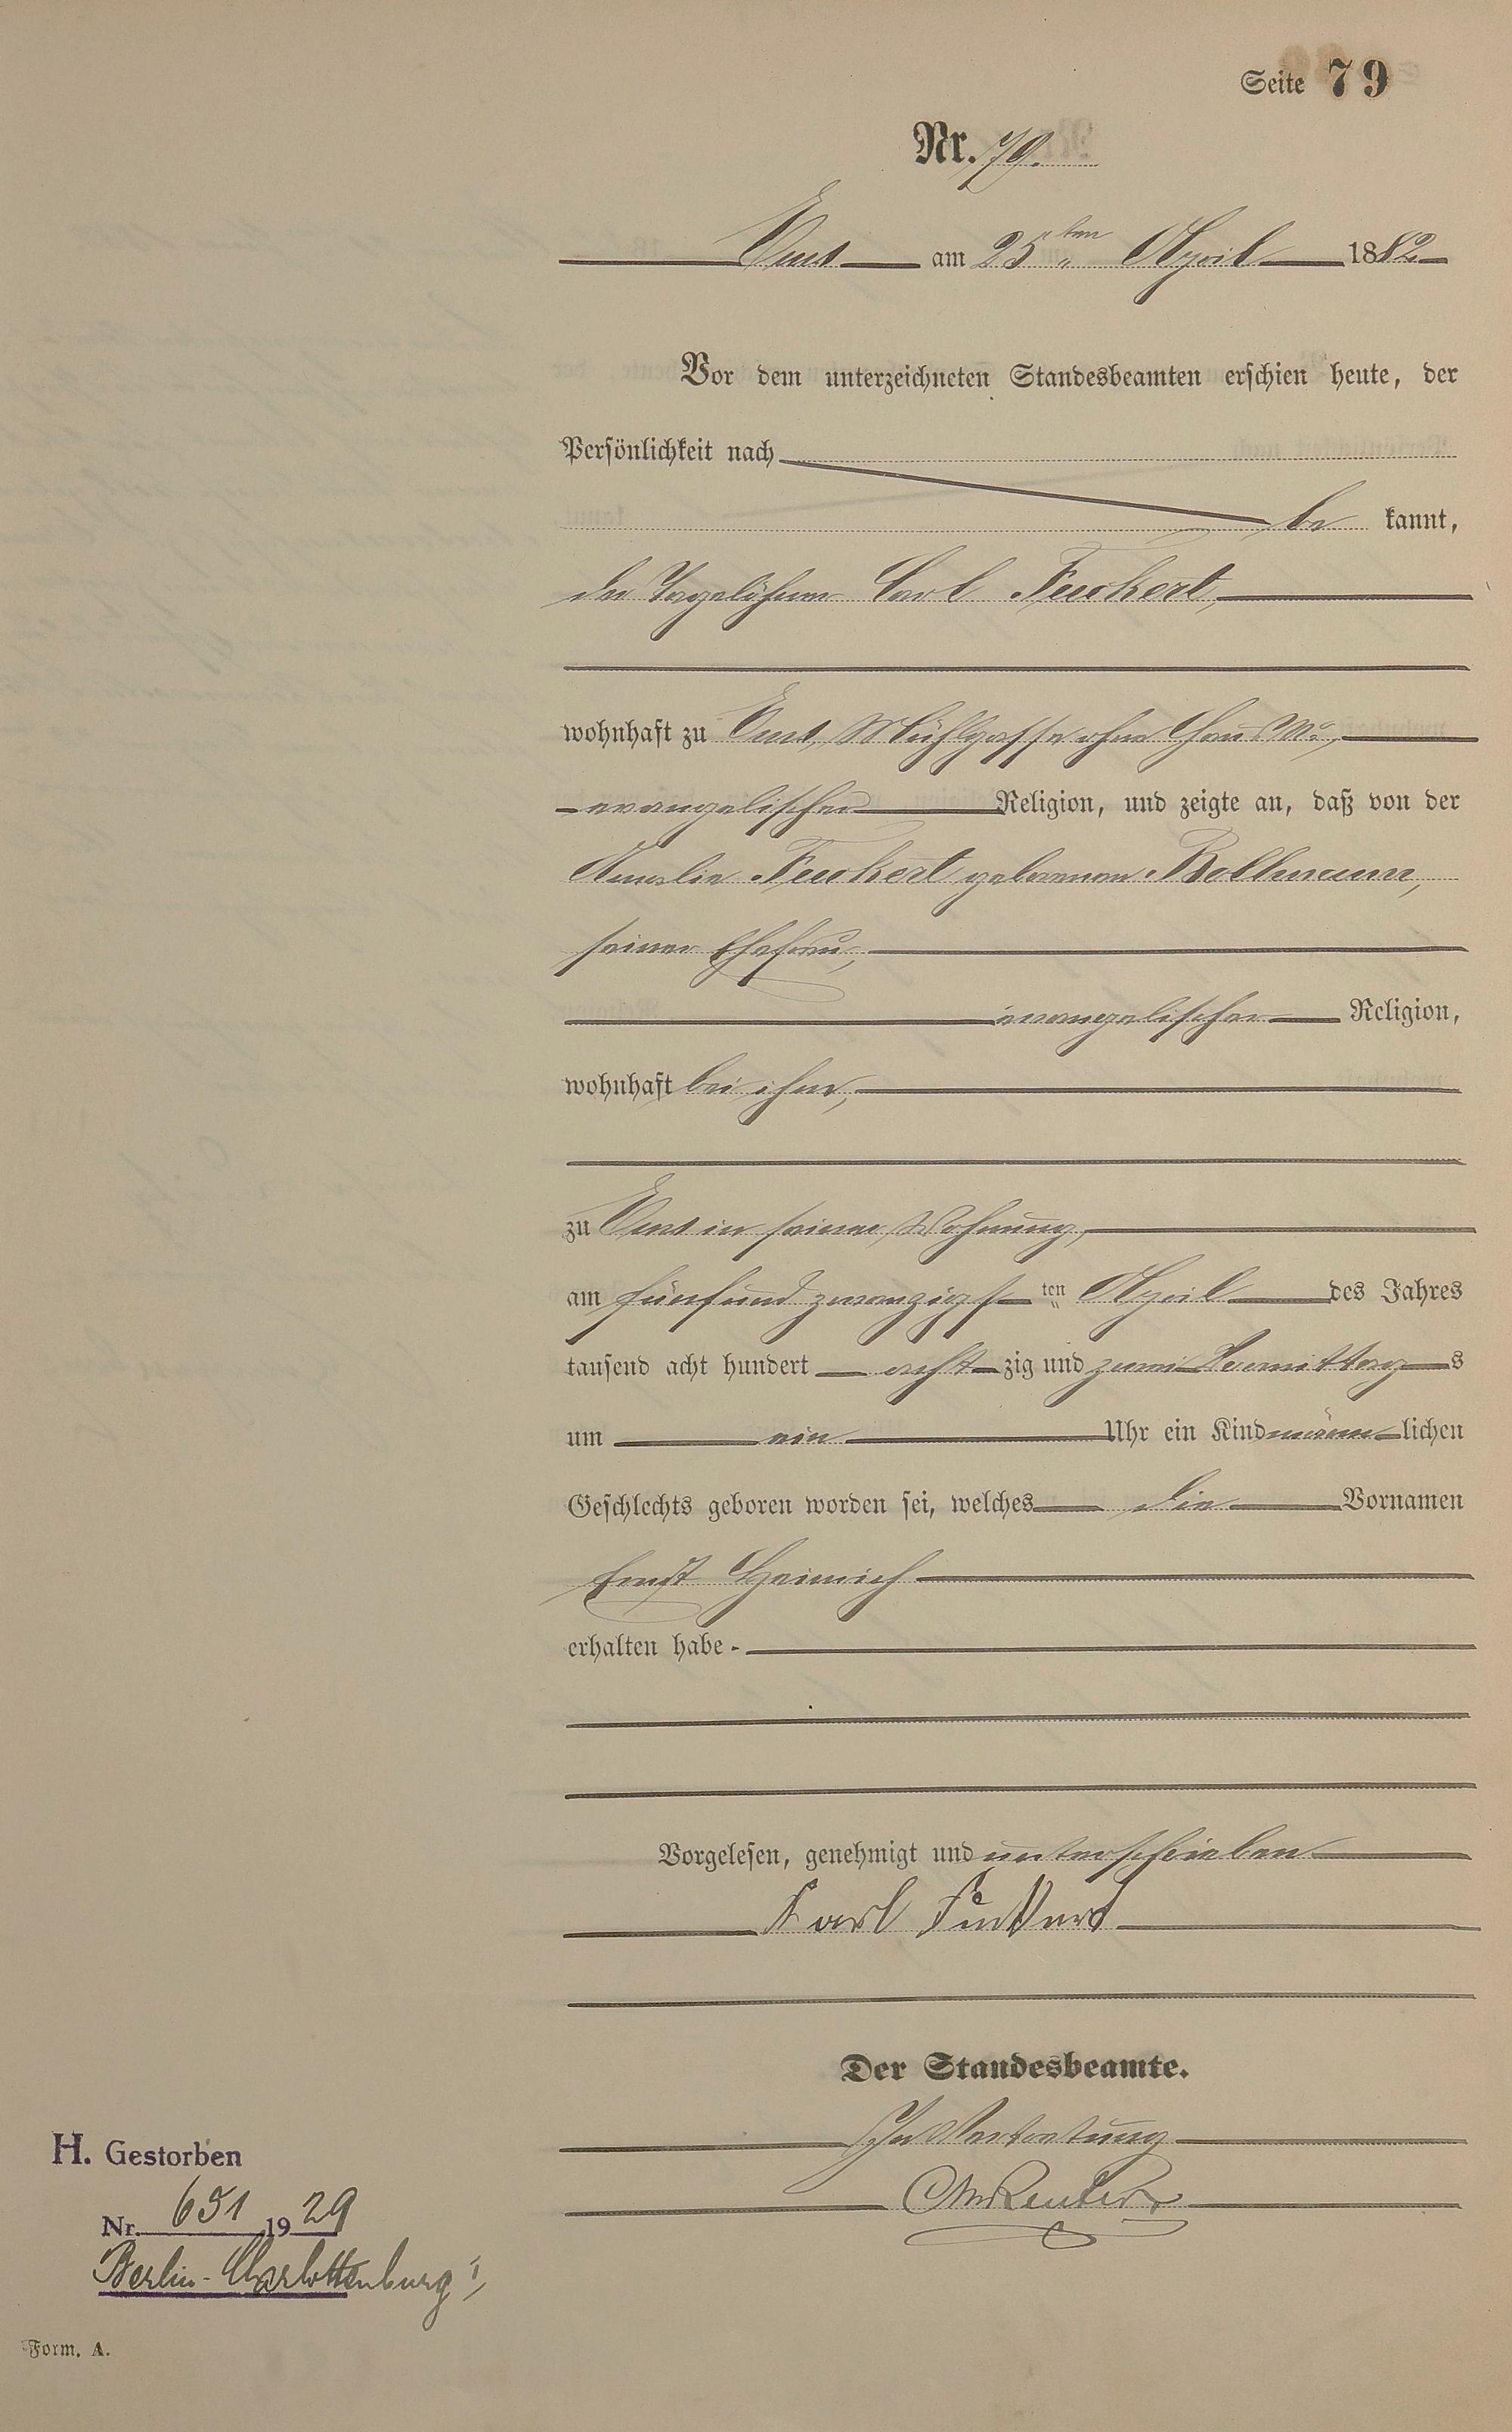 Seite 79
Nr. 79.
Ems am 25ten April 1882
Vor dem unterzeichneten Standesbeamten erschien heute, der
Persönlichkeit nach
be kannt,
der Tagelöhner Carl Feuckert,
wohnhaft zu Ems, Mühlgasse ohne Haus No,
evangelischer Religion, und zeigte an, daß von der
Amalie Feuckert geborenen Bollmann,
seiner Ehefrau,
evangelischer Religion,
wohnhaft bei ihm,
zu Ems in seiner Wohnung,
am fünfund zwanzigsten April des Jahres
tausend acht hundert acht zig und zwei Vormittags
um ein Uhr ein Kind männlichen
Geschlechts geboren worden sei, welches die Vornamen
Ernst Heinrich
erhalten habe.
Vorgelesen, genehmigt und unterschrieben
Karl Feukert
Der Standesbeamte.
In Vertretung
H. Gestorben
Nr. 651 1929
Berlin-Charlottenburg I,
Form. A.